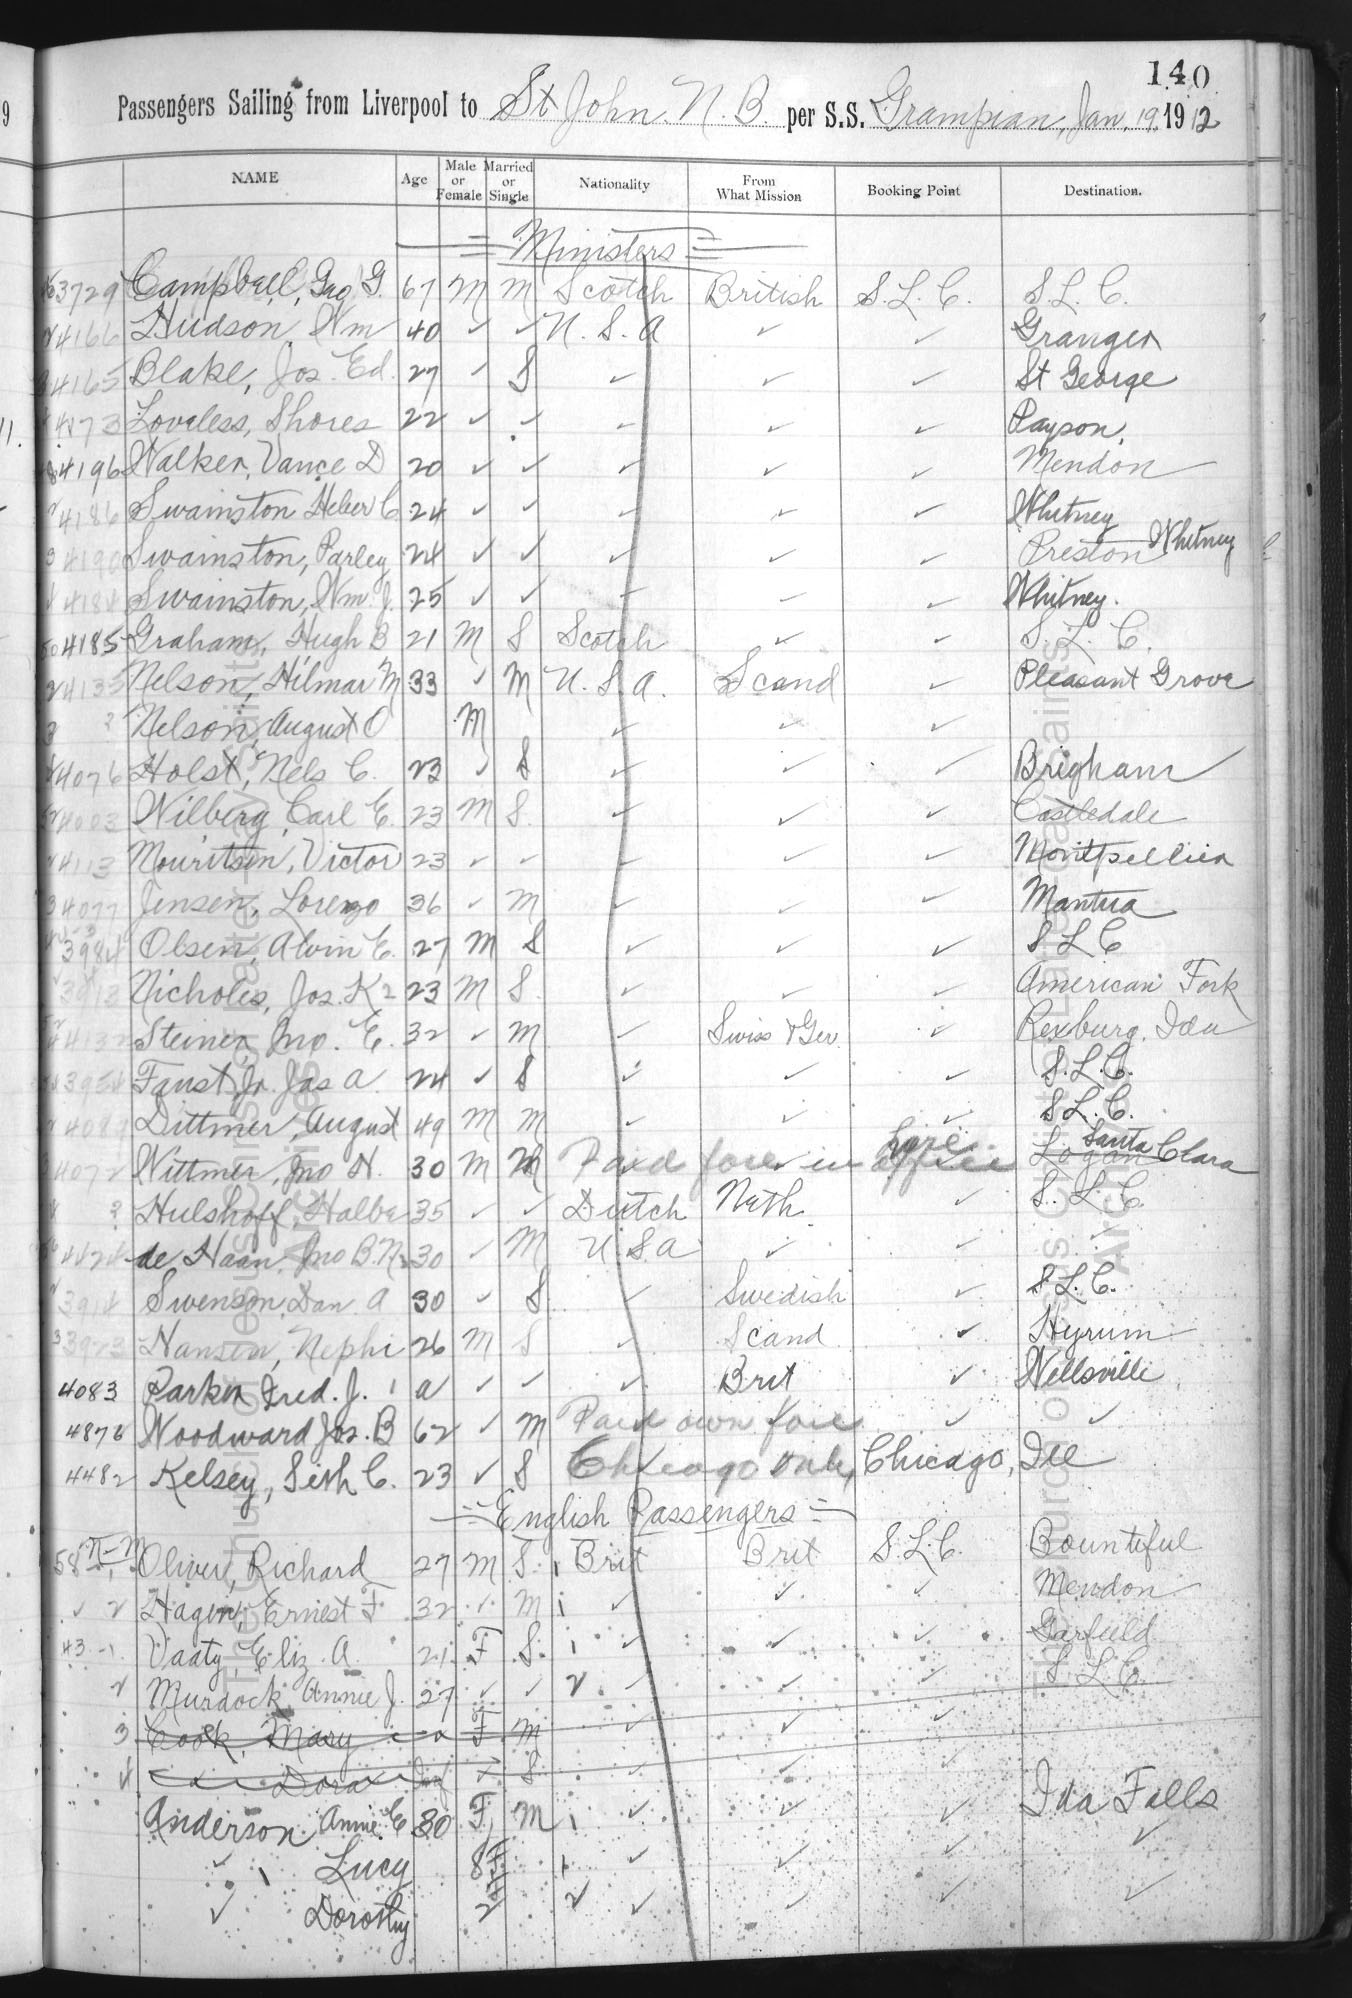 140
Passengers Sailing from Liverpool to St John. N. B. per S.S. Grampian, Jan. 19. 1912
NAME Age Male or Female Married or Single Nationality From What Mission Booking Point Destination.
Ministers
3729 Campbell, Geo G. 67 M M Scotch British S. L. C. S. L. C.
4166 Hudson, Wm 40 ✓ ✓ U. S. A ✓ ✓ Granger
4165 Blake, Jos. Ed. 27 ✓ S ✓ ✓ ✓ St George
4173 Loveless, Shores 22 ✓ ✓ ✓ ✓ ✓ Payson.
4196 Walker, Vance D 20 ✓ ✓ ✓ ✓ ✓ Mendon
4186 Swainston Heber C 24 ✓ ✓ ✓ ✓ ✓ Whitney
3 4190 Swainston, Parley 24 ✓ ✓ ✓ ✓ ✓ Preston Whitney
4 4184 Swainston, Wm. J. 25 ✓ ✓ ✓ ✓ ✓ Whitney.
4185 Graham, Hugh B 21 M S Scotch ✓ ✓ S. L. C.
2 4135 Nelson, Hilmar M 33 ✓ M U. S. A. Scand ✓ Pleasant Grove
3 ? Nelson, August O M ✓ ✓ ✓
4076 Holst, Nels C. 23 ✓ S ✓ ✓ ✓ Brigham
4003 Wilberg, Carl E. 23 M S. ✓ ✓ ✓ Castledale
4113 Mouritsen, Victor 23 ✓ ✓ ✓ ✓ ✓ Montpellier
3 4077 Jensen, Lorenzo 36 ✓ M ✓ ✓ ✓ Mantua
3984 Olsen, Alvin E. 27 M S ✓ ✓ ✓ S L C
3913 Nicholes, Jos. K 23 M S. ✓ ✓ ✓ American Fork
4132 Steiner, Jno. E. 32 ✓ M ✓ Swiss & Ger ✓ Rexburg. Ida
3954 Faust Jr. Jas A. 24 ✓ S ✓ ✓ ✓ S.L.C.
4089 Dittmer, August 49 M M ✓ ✓ ✓ S L. C.
4072 Wittmer, Jno H. 30 M M Paid fare in office here Logan Santa Clara
? Hulshoff, Halbe 35 ✓ ✓ Dutch Neth. ✓ S. L. C.
4424 de Haan, Jno B. N. 30 ✓ M U. S a ✓ ✓ ✓
3914 Swenson, Dan A 30 ✓ S ✓ Swedish ✓ S L. C.
3 3923 Hansen, Nephi 26 M S ✓ Scand ✓ Hyrum
4083 Parker Fred. J. a ✓ ✓ ✓ Brit ✓ Wellsville
4876 Woodward Jos. B 62 ✓ M Paid own fare ✓ ✓
4482 Kelsey, Seth C. 23 ✓ S Chicago only Chicago, Ill
English Passengers
58 Oliver, Richard 27 M S. 1 Brit Brit S.L.C. Bountiful
✓ 2 Hagen, Ernest F 32 ✓ M 1 ✓ ✓ ✓ Mendon
43 - 1 Vaaty, Eliz. A. 21 F S. 1 ✓ ✓ ✓ Garfield
2 Murdock, Annie J. 27 ✓ ✓ 2 ✓ ✓ ✓ S. L. C.
3 Cook, Mary a F M ✓ ✓ ✓
4 Dora Inf ✓ S ✓ ✓ ✓
Anderson Annie E 30 F M 1 ✓ ✓ ✓ Ida Falls
✓ Lucy 8 F 1 ✓ ✓ ✓ ✓
✓ Dorothy 2 2 ✓ ✓ ✓ ✓